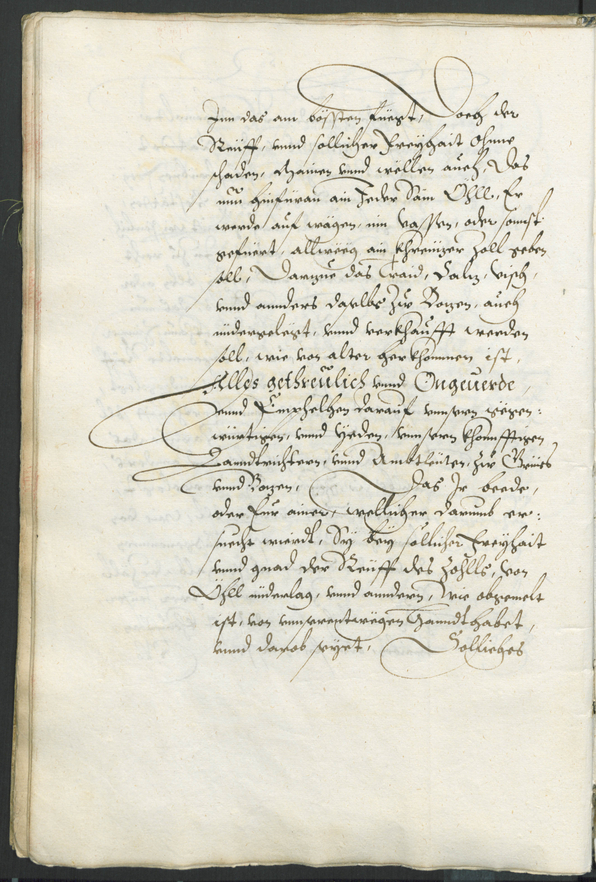 Inn das am bössten fuegt, Doch der
Reüff, vnnd sollicher Freyhait ohnne
schaden, Mainen vnnd wellen auch, Das
nun hinfüran ain Jeder Säm Öhll, Er
werde auf wägen, inn Vassen, oder sonnst
gefüert, allweeg ain khreüzer Zoll geben
soll, Darzue das Traid, Salz, Visch,
vnnd annders daselbs zw Bozen, auch
nidergelegt, vnnd verkhaufft werden
soll, wie von alter herkhommen ist,
Alles gethreulich vnnd Ongeuerde,
vnnd Emphelhen darauf vnnsern gegen:
würtigen, vnnd yeden, künfftigen khonfftigen
Lanndtrichtern, vnnd Ambtleüten, zw Gries
vnnd Bozen, Das Ir beede,
oder Eur ainer, wellicher darumb er:
suecht wierdt, Sy bey sollicher Freyhait
vnnd gnad der Reüff des Zohlls, von
Öhll niderlag, vnnd anndern, wie obgemelt
ist, von vnnserentwegen Hanndthabet,
vnnd darob seyet, Solliches